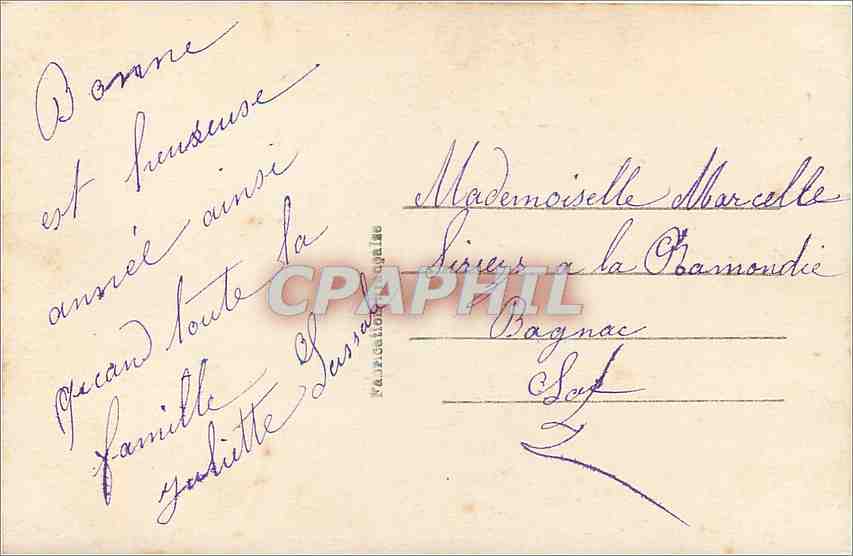 Bonne
est heureuse
année ainsi
quand toute la
famille
Juliette
Fabrication Française
CPAPHIL
Mademoiselle Marcelle
a la Ramondie
Bagnac
Lot